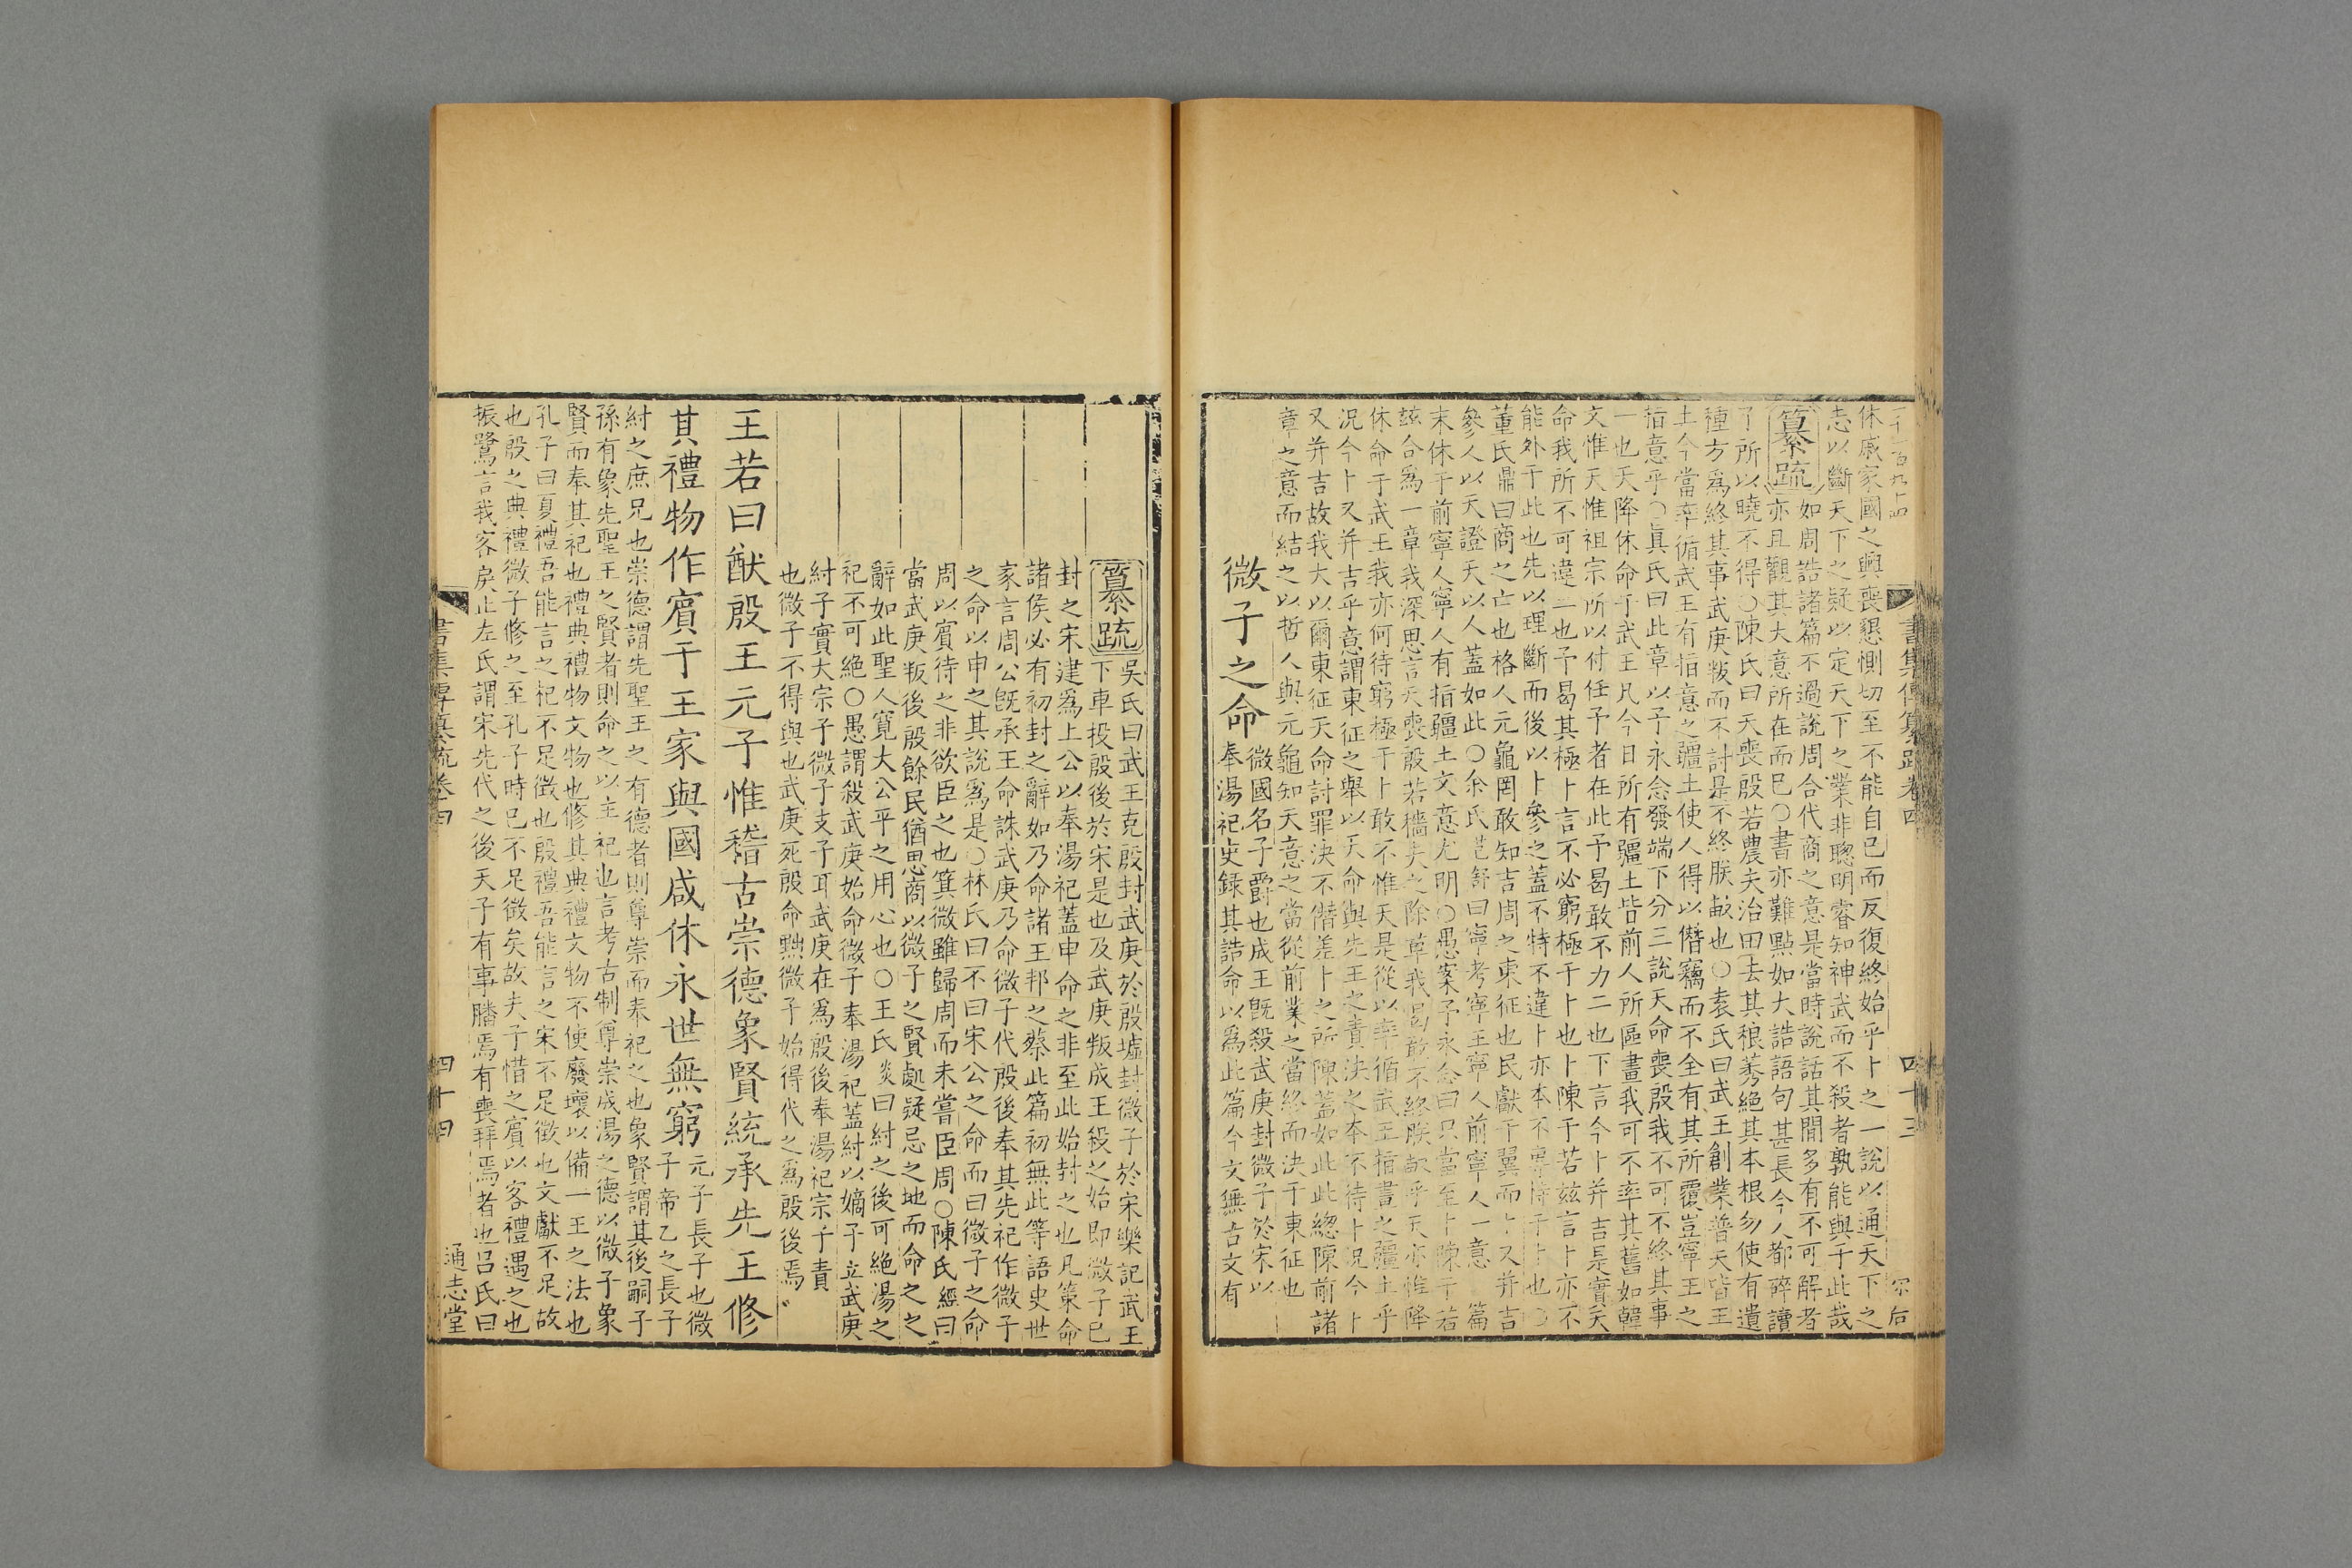 休戚家國之興喪懇惻切至不能自已而反復終始乎卜之一說以通天下之
志以斷天下之疑以定天下之業非聰明睿知神武而不殺者孰能與于此哉
纂疏
如周誥諸篇不過說周合代商之意是當時說話其間多有不可解者
亦且觀其大意所在而已○書亦難點如大誥語句甚長今人都碎讀
了所以曉不得○陳氏曰天喪殷若農夫治田去其稂莠絕其本根勿使有遺
種方為終其事武庚叛而不討是不終朕畝也○袁氏曰武王創業普天皆王
土今當率循武王有指意之疆土使人得以僭竊而不全有其所覆豈寧王之
指意乎○真氏曰此章以予永念發端下分三說天命喪殷我不可不終其事
一也天降休命于武王凡今日所有疆土皆前人所區畫我可不率其舊如韓
文惟天惟祖宗所以付任予者在此予曷敢不力二也下言今卜并吉是實天
命我所不可違二也予曷其極卜言不必窮極于卜也卜陳于若茲言卜亦不
能外于此也先以理斷而後以卜參之蓋不特不違卜亦本不專待于卜也○
董氏鼎曰商之亡也格人元龜罔敢知吉周之東征也民獻于翼而卜又并吉
參人以天證天以人蓋如此○余氏芑舒曰寧考寧王寧人前寧人一意 篇
末休于前寧人寧人有指疆土文意尤明○愚案予永念曰只當至卜陳于若
茲合為一章我深思言天喪殷若穡夫之除草我曷敢不終朕畝乎天亦惟降
休命于武王我亦何待窮極于卜敢不惟天是從以率循武王指畫之疆土乎
況今卜又并吉乎意謂東征之舉以天命與先王之責決之本不待卜況今卜
又并吉故我大以爾東征天命討罪決不僭差卜之所陳蓋如此此總陳前諸
章之意而結之以哲人與元龜知天意之當從前業之當終而決于東征也
微子之命
微國名子爵也成王既殺武庚封微子於宋以
奉湯祀史錄其誥命以為此篇今文無古文有
書集傳纂疏卷四
四十三
纂疏
吳氏曰武王克殷封武庚於殷墟封微子於宋樂記武王
下車投殷後於宋是也及武庚叛成王殺之始即微子已
封之宋建為上公以奉湯祀蓋申命之非至此始封之也凡策命
諸侯必有初封之辭如乃命諸王邦之蔡此篇初無此等語史世
家言周公既承王命誅武庚乃命微子代殷後奉其先祀作微子
之命以申之其說為是○林氏曰不曰宋公之命而曰微子之命
周以賓待之非欲臣之也箕微雖歸周而未嘗臣周○陳氏經曰
當武庚叛後殷餘民猶思商以微子之賢處疑忌之地而命之之
辭如此聖人寬大公平之用心也○王氏炎曰紂之後可絕湯之
祀不可絕○愚謂殺武庚始命微子奉湯祀蓋紂以嫡子立武庚
紂子實大宗子微子支子耳武庚在為殷後奉湯祀宗子責
也微子不得與也武庚死殷命黜微子始得代之為殷後焉
王若曰猷殷王元子惟稽古崇德象賢統承先王修
其禮物作賓于王家與國咸休永世無窮
元子長子也微
子帝乙之長子
紂之庶兄也崇德謂先聖王之有德者則尊崇而奉祀之也象賢謂其後嗣子
孫有象先聖王之賢者則命之以主祀也言考古制尊崇成湯之德以微子象
賢而奉其祀也禮典禮物文物也修其典禮文物不使廢壞以備一王之法也
孔子曰夏禮吾能言之杞不足徵也殷禮吾能言之宋不足徵也文獻不足故
也殷之典禮微子修之至孔子時已不足徵矣故夫子惜之賓以客禮遇之也
振鷺言我客戾止左氏謂宋先代之後天子有事膰焉有喪拜焉者也呂氏曰
書集傳纂疏卷四
四十四
通志堂